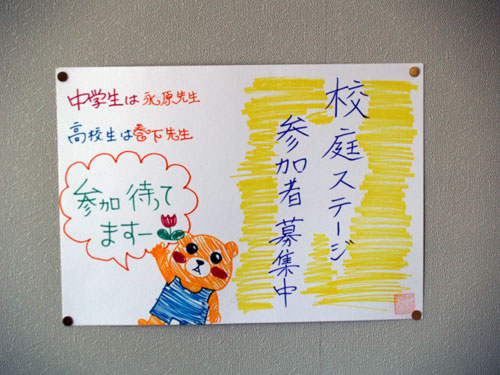 校庭ステージ
参加者募集中
中学生は永原先生
高校生は宮下先生
参加待って
ますー